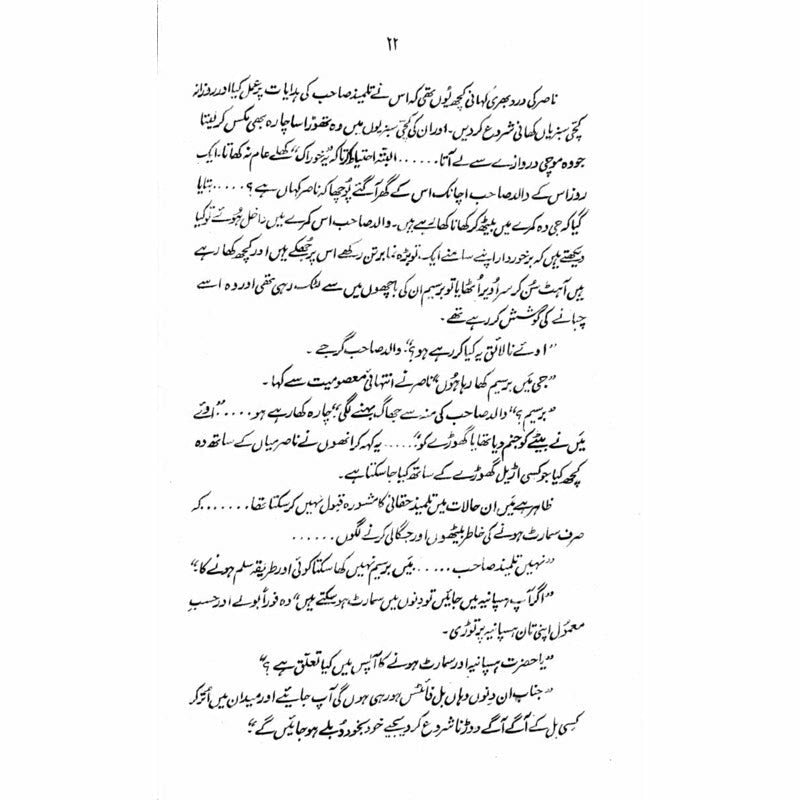 ۲۲
ناصر کی درد بھری کہانی کچھ یُوں تھی کہ اس نے تلمیذ صاحب کی ہدایات پر عمل کیا اور روزانہ
کچی سبزیاں کھانی شروع کر دیں۔ اور ان کی کچّی سبزیوں میں وہ تھوڑا سا چارہ بھی مکس کر لیتا
جو وہ موچی دروازے سے لے آتا...... البتہ احتیاط کرتا کہ یہ "خوراک" کھلے عام نہ کھاتا۔ ایک
روز اس کے والد صاحب اچانک اس کے گھر آ گئے پُوچھا کہ ناصر کہاں ہے ؟..... بتایا
گیا کہ جی وہ کمرے میں بیٹھ کر کھانا کھا رہے ہیں۔ والد صاحب اس کمرے میں داخل ہُوئے تو کیا
دیکھتے ہیں کہ برخوردار اپنے سامنے ایک توبڑہ نما برتن رکھے اس پر جُھکے ہیں اور کچھ کھا رہے
ہیں آہٹ سُن کر سر اُوپر اُٹھایا تو برسیم ان کی باچھوں میں سے لٹک رہی تھی اور وہ اسے
چبانے کی کوشش کر رہے تھے۔
"اوئے نالائق یہ کیا کر رہے ہو؟" والد صاحب گرجے۔
"جی مَیں برسیم کھا رہا ہُوں" ناصر نے انتہائی معصومیت سے کہا۔
"برسیم؟" والد صاحب کی منہ سے جھاگ بہنے لگی "چارہ کھا رہے ہو..... اوئے
مَیں نے بیٹے کو جنم دیا تھا یا گھوڑے کو"..... یہ کہہ کر انھوں نے ناصر میاں کے ساتھ وہ
کچھ کیا جو کسی اڑیل گھوڑے کے ساتھ کیا جا سکتا ہے۔
ظاہر ہے مَیں ان حالات میں تلمیذ حقانی کا مشورہ قبول نہیں کر سکتا تھا....... کہ
صرف سمارٹ ہونے کی خاطر بیٹھوں اور جگالی کرنے لگوں......
"نہیں تلمیذ صاحب..... مَیں برسیم نہیں کھا سکتا کوئی اور طریقہ سلم ہونے کا۔"
"اگر آپ ہسپانیہ میں جائیں تو دِنوں میں سمارٹ ہو سکتے ہیں" وہ فوراً بولے اور حسبِ
معمول اپنی تان ہسپانیہ پر توڑی۔
"یا حضرت ہسپانیہ اور سمارٹ ہونے کا آپس میں کیا تعلق ہے ؟"
"جناب ان دِنوں وہاں بل فائٹس ہو رہی ہوں گی آپ جائیے اور میدان میں اُتر کر
کسِی بل کے آگے آگے دوڑنا شروع کر دیجیے خود بخود دُبلے ہو جائیں گے"